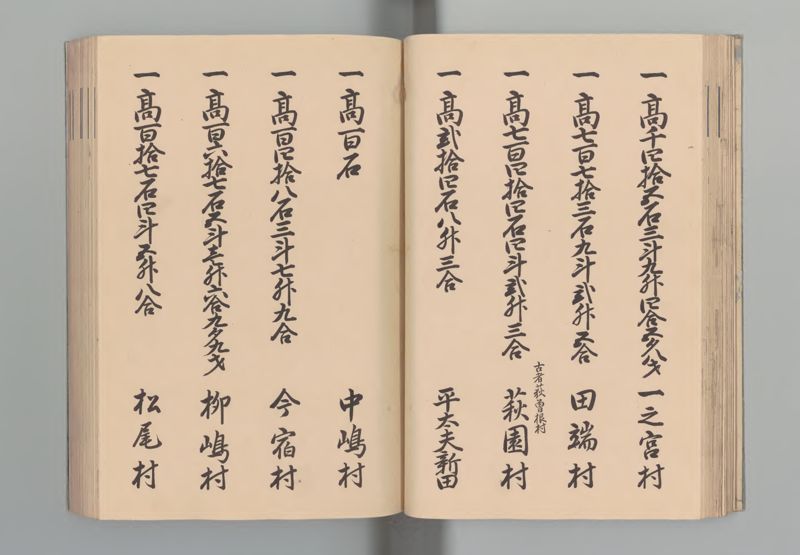 一高千四拾五石三斗九升四合五夕八才 一之宮村
一高七百七拾三石九斗弐升五合 田端村
一高七百四拾四石四斗弐升三合 萩園村
古者萩曽根村
一高弐拾四石八升三合 平太夫新田
一高百石 中嶋村
一高百四拾八石三斗七升九合 今宿村
一高百六拾七石五斗壱升六合九夕九才 柳嶋村
一高百拾七石四斗五升八合 松尾村